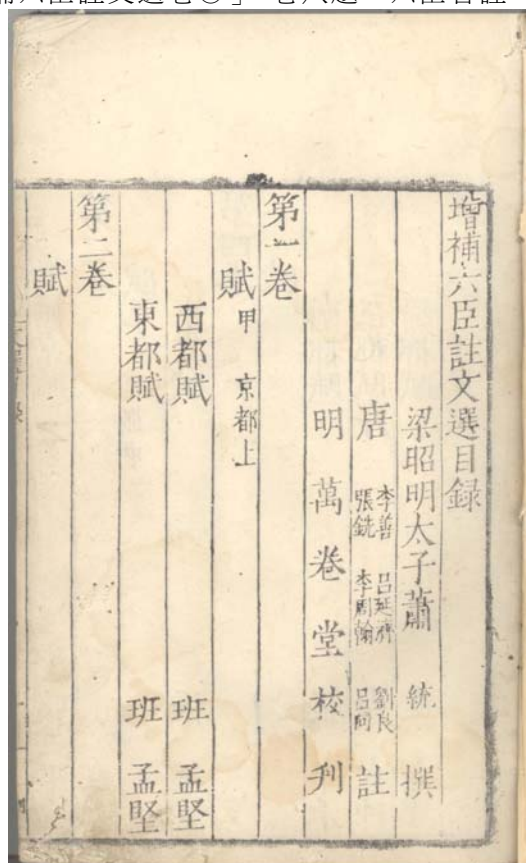 增補六臣註文選目録
梁昭明太子蕭統撰
唐 李善 呂延濟 劉良 張銑 李周翰 呂向 註
明萬卷堂校刋
第一卷
賦甲 京都上
西都賦 班孟堅
東都賦 班孟堅
第二卷
賦